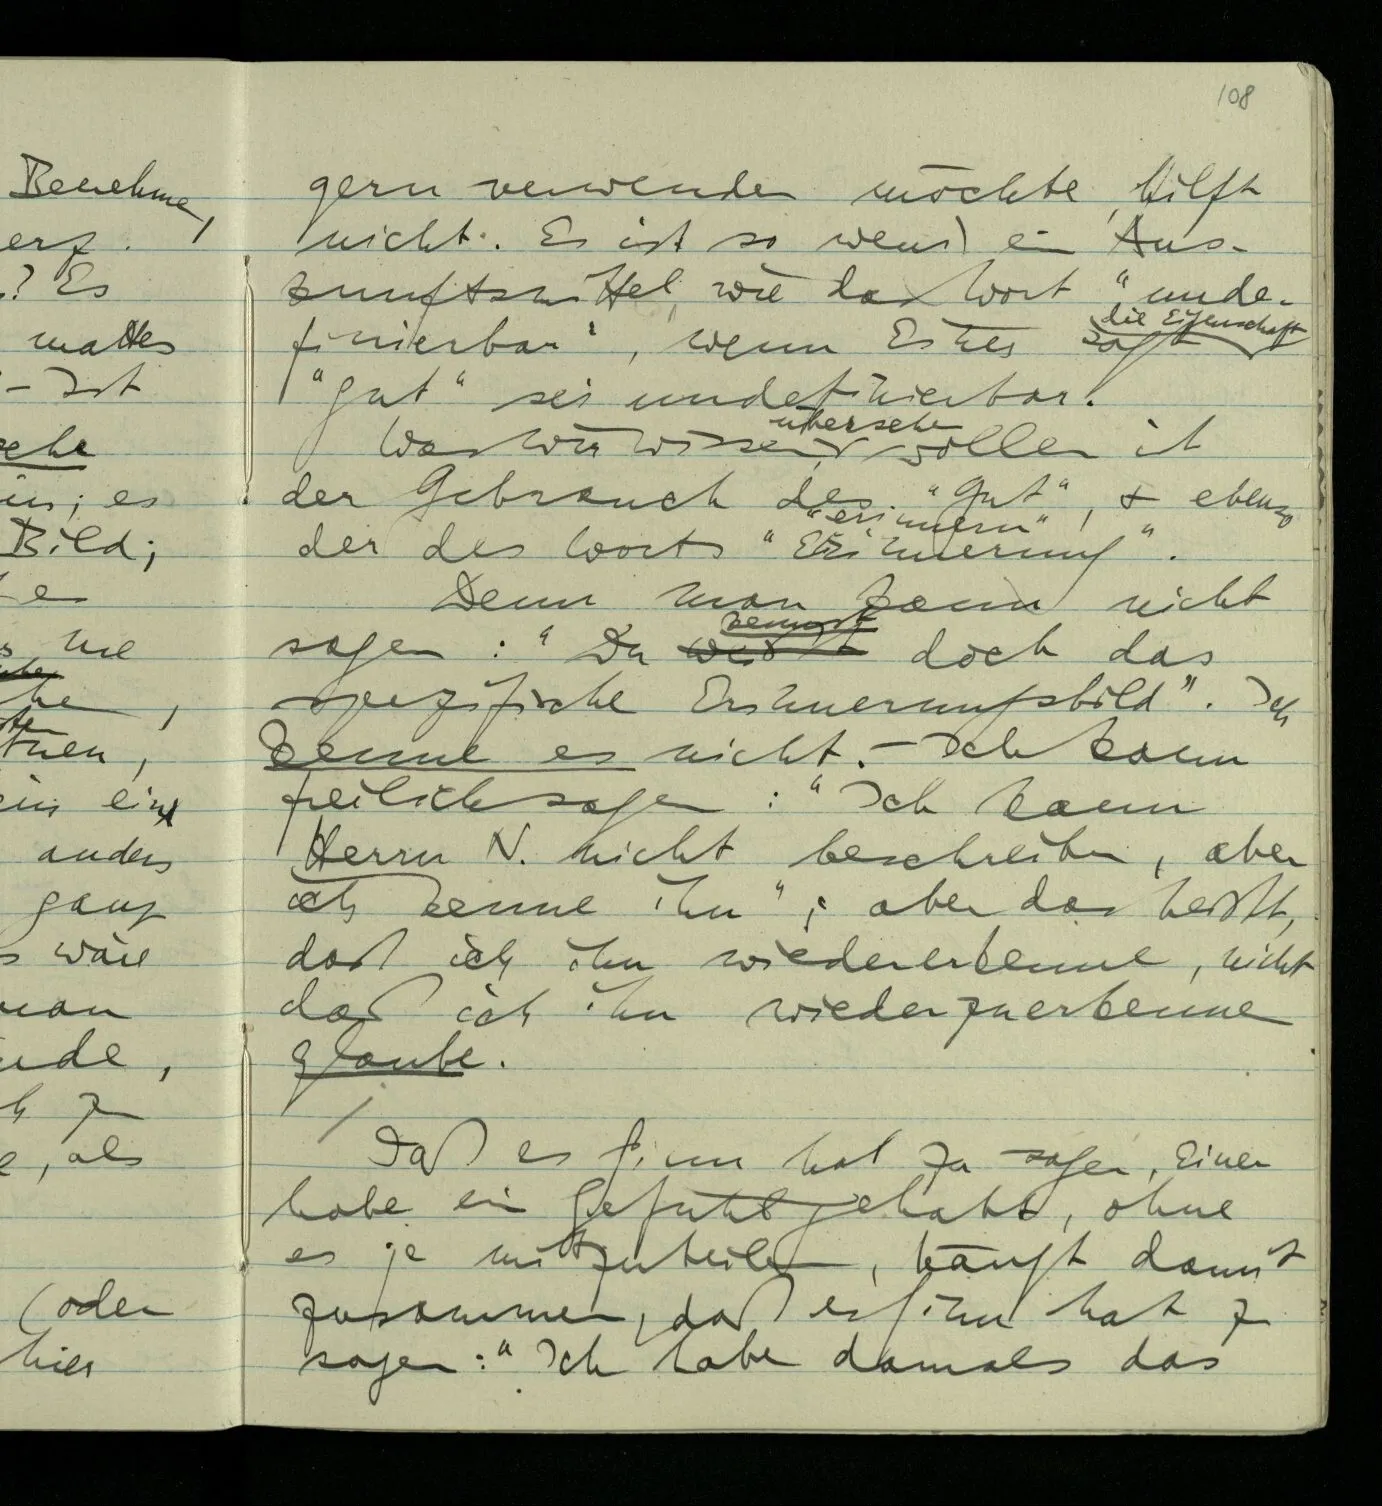 108
Benehmen,
erf.
? Es
mattes
- Ist
sehe
ein; es
Bild;
wie
anders
ganz
wäre
man
als
(oder
hier
gern verwenden möchte, hilft
nicht. Es ist so wenig ein Aus-
kunftsmittel, wie das Wort "unde-
die Eigenschaft
finierbar", wenn Einer sagt
"gut" sei undefinierbar.
übersehen
Was wir wissen, wollen ist
der Gebrauch des "Gut", & ebenso
"erinnern",
der des Worts "Erinnerung".
Denn man kann nicht
kennst
sagen: "Du weißt doch das
spezifische Erinnerungsbild". Ich
kenne es nicht. – Ich kann
freilich sagen: "Ich kann
Herrn N. nicht beschreiben, aber
ich kenne ihn"; aber das heißt,
daß ich ihn wiedererkenne, nicht
daß ich ihn wiederzuerkennen
glaube.
/ Daß es Sinn hat zu sagen, Einer
habe ein Gefühl gehabt, ohne
es je mitzuteilen, hängt damit
zusammen, daß es Sinn hat zu
sagen: "Ich habe damals das